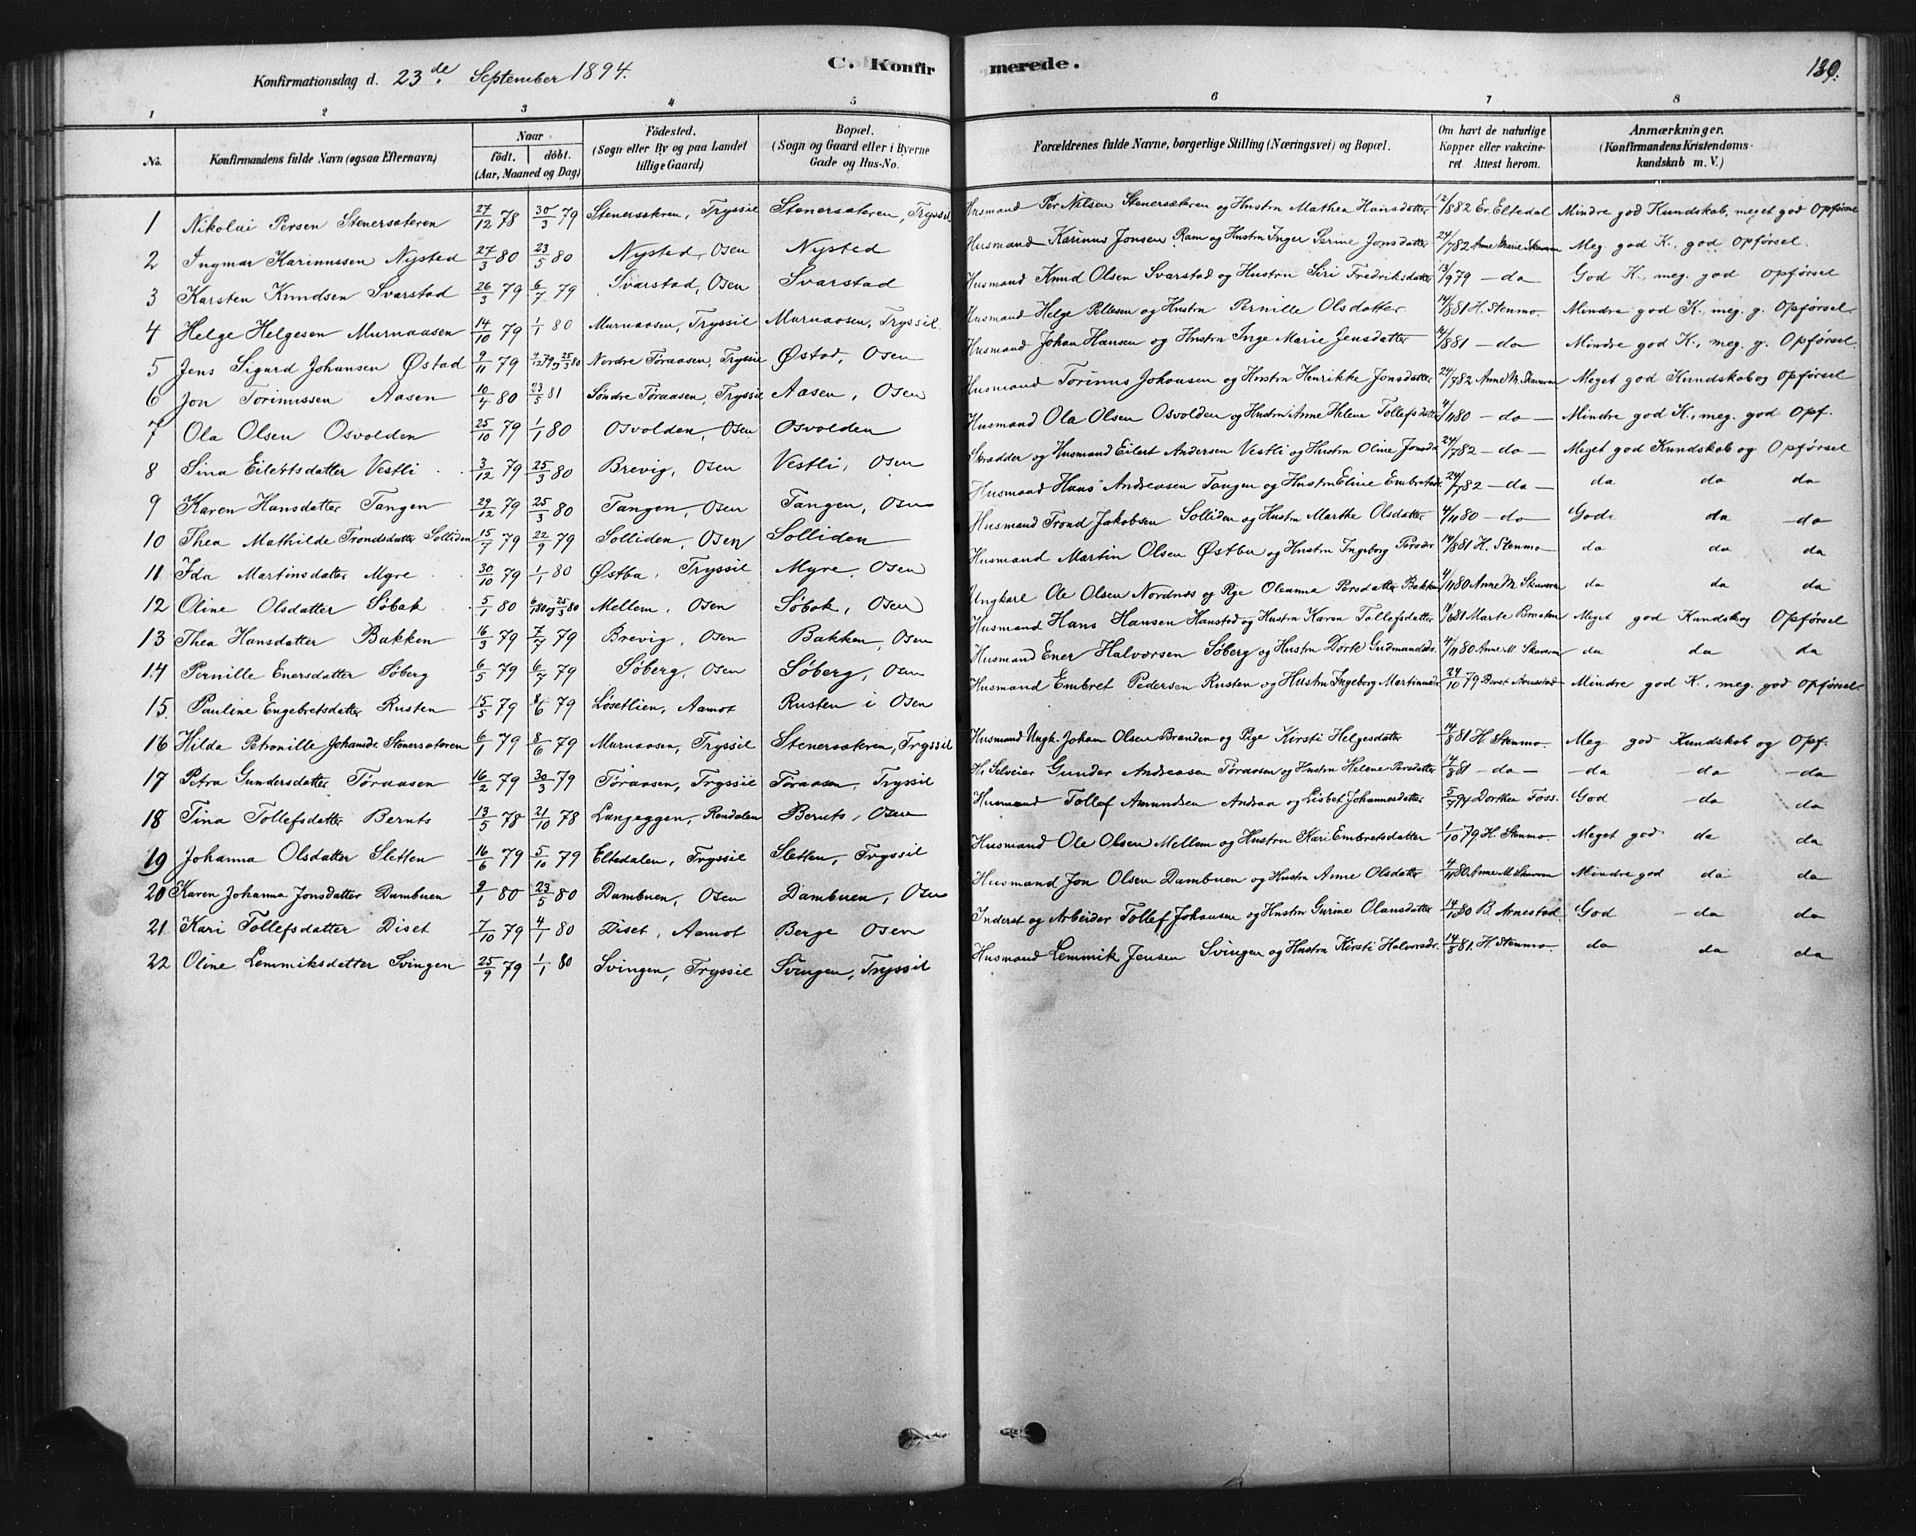 Konfirmationsdag d. 23de September 1894.
C. Konfirmerede.
139.
1 2 3 4 5 6 7 8
No. Konfirmandens fulde Navn (ogsaa Efternavn) Naar født. døbt. (Aar, Maaned og Dag) Fødested. (Sogn eller By og paa Landet tillige Gaard) Bopæl. (Sogn og Gaard eller i Byerne Gade og Hus-No. Forældrenes fulde Navne, borgerlige Stilling (Næringsvei) og Bopæl. Om havt de naturlige Kopper eller vakcineret. Attest herom. Anmærkninger. (Konfirmandens Kristendomskundskab m. V.)
1 Nikolai Persen Stenersæteren 27/12 78 30/3 79 Stenersæteren, Tryssil Stenersæteren, Tryssil Husmand Per Nilsen Stenersæteren og Hustru Mathea Hansdatter 12/8 82 Er. Eltedal Mindre god Kundskab, meget god Opførsel
2 Ingmar Karinussen Nysted 27/3 80 23/5 80 Nysted, Osen Nysted Husmand Karinus Jonsen Ram og Hustru Inger Serine Jonsdatter 24/7 82 Anne Marie Skavern Meg god K., god Opførsel.
3 Karsten Knudsen Svarstad 26/3 79 6/7 79 Svarstad, Osen Svarstad Husmand Knud Olsen Svarstad og Hustru Siri Fredriksdatter 13/9 79 - do God K., meg. god Opførsel
4 Helge Helgesen Murnaasen 14/10 79 1/1 80 Murnaasen, Tryssil Murnaasen, Tryssil. Husmand Helge Pellesen og Hustru Pernille Olsdatter 14/8 81 H. Stenmo. Mindre god K., meg. g. Opførsel.
5 Jens Sigurd Johansen Østad 9/11 79 25/3 80 Nordre Tøraasen, Tryssil Østad, Osen Husmand Johan Hansen og Hustru Inge Marie Jensdatter 14/8 81 - do - Mindre god K., meg. g. Opførsel.
6 Jon Torinussen Aasen 10/4 80 23/5 81 Søndre Tøraasen, Tryssil Aasen, Osen Husmand Torinus Johansen og Hustru Henrikke Jonsdatter 24/7 82 Anne M. Skavern Meget god Kundskab og Opførsel
7 Ola Olsen Osvolden 25/10 79 1/1 80 Osvolden, Osen Osvolden Husmand Ola Olsen Osvolden og Hustru Anne Helene Tollefsdatter 4/11 80 - do - Mindre god K., meg. god Opf.
8 Sina Eilertsdatter Vestli 3/12 79 25/3 80 Brevig, Osen Vestli, Osen Skrædder og Husmand Eilert Andersen Vestli og Hustru Oline Jonsda 24/7 82 - do - Meget god Kundskab og Opførsel
9 Karen Hansdatter Tangen 29/12 79 25/3 80 Tangen, Osen Tangen, Osen Husmand Hans Andreasen Tangen og Hustru Eline Embretsd. 24/7 82 - da - da da da
10 Thea Mathilde Trondsdatter Solliden 15/7 79 22/9 79 Solliden, Osen Solliden Husmand Trond Jakobsen Solliden og Hustru Marthe Olsdatter 4/11 80 - do - Gode da - da
11 Ida Martinsdatter Myre 30/10 79 1/1 80 Østbu, Tryssil Myre, Osen Husmand Martin Olsen Østbu og Hustru Ingeborg Persdr. 14/8 81 H. Stenmo da da da
12 Oline Olsdatter Søbak 5/1 80 25/3 80 Mellem, Osen Søbak, Osen Ungkarl Ole Olsen Nordnæs og Pige Oleanna Persdatter Bakken 4/11 80 Anne M. Skavern da da da
13 Thea Hansdatter Bakken 16/3 79 7/7 79 Brevig, Osen Bakken, Osen Husmand Hans Hansen Hanstad og Hustru Karen Tollefsdatter 14/6 81 Marte Braaten Meget god Kundsk og Opførsel
14 Pernille Enersdatter Søberg 6/5 79 6/7 79 Søberg, Osen Søberg, Osen Husmand Ener Halvorsen Søberg og Hustru Dorte Gudmundsdr. 4/11 80 Anne M. Skavern da da da
15. Pauline Engebretsdatter Rusten 15/5 79 8/6 79 Løsetlien, Aamot Rusten i Osen Husmand Embret Pedersen Rusten og Hustru Ingeborg Martinusdr 24/10 79 Beret Arnestad Mindre god K., meg. god Opførsel.
16 Hilda Petronille Johansdr. Stenersæteren 6/1 79 8/6 79 Murnaasen, Tryssil Stenersæteren, Tryssil Husmand Ungk. Johan Olsen Brænden og Pige Kirsti Helgesdatter 14/8 81 H. Stenmo. Meg god Kundskab og Opf.
17 Petra Gundersdatter Tøraasen 16/2 79 30/3 79 Tøraasen, Tryssil Tøraasen, Tryssil Hr Selveier Gunder Andreasen Tøraasen og Hustru Helene Persdatter 14/8 81 - da - - da - da - da
18 Tina Tollefsdatter Bernts 13/5 78 21/10 78 Langeggen, Rendalen Bernts, Osen Husmand Tollef Amundsen Andraa og Lisbet Johannesdatter 5/7 94 Dorthea Foss. God - da da
19 Johanna Olsdatter Sletten 16/6 79 5/10 79 Eltedalen, Tryssil Sletten, Tryssil Husmand Ole Olsen Mellem og Hustru Kari Embretsdatter 1/10 79 H. Stenmo. Meget god da da
20 Karen Johanna Jonsdatter Dambuen 9/1 80 23/5 80 Dambuen, Osen Dambuen, Osen Husmand Jon Olsen Dambuen og Hustru Anne Olsdatter 4/11 80 Anne M. Skavern Mindre god da da
21 Kari Tollefsdatter Diset 7/10 79 4/1 80 Diset, Aamot Berge Osen Inderst og Arbeider Tollef Johansen og Hustru Gurine Olausdatter 14/10 80 B. Arnestad God - da da
22 Oline Lemmiksdatter Svingen 25/9 79 1/1 80 Svingen, Tryssil Svingen, Tryssil Husmand Lemmik Jensen Svingen og Hustru Kirsti Halvorsdr. 14/8 81. H. Stenmo da da da